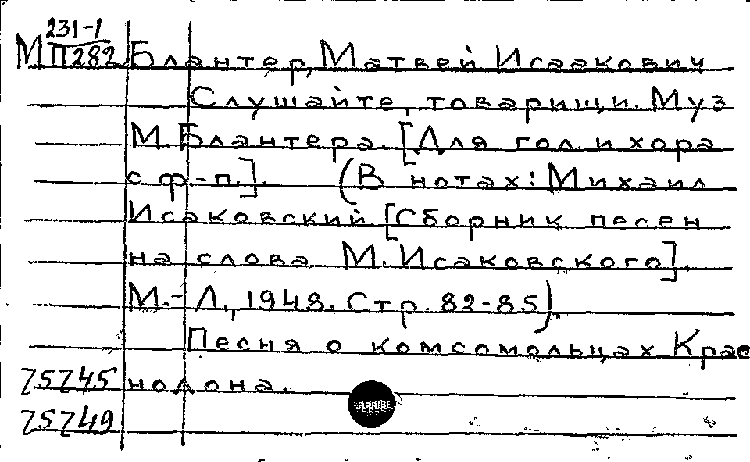 231-1
МП282 Блантер, Матвей Исаакович
Слушайте, товарищи. Муз
М. Блантера. [Для гол. и хора
с ф-п.]. (В нотах: Михаил
Исаковский [Сборник песен
на слова М. Исаковского].
М.-Л., 1948. Стр. 82-85).
Песня о комсомольцах Крас
75745 нодона.
75749